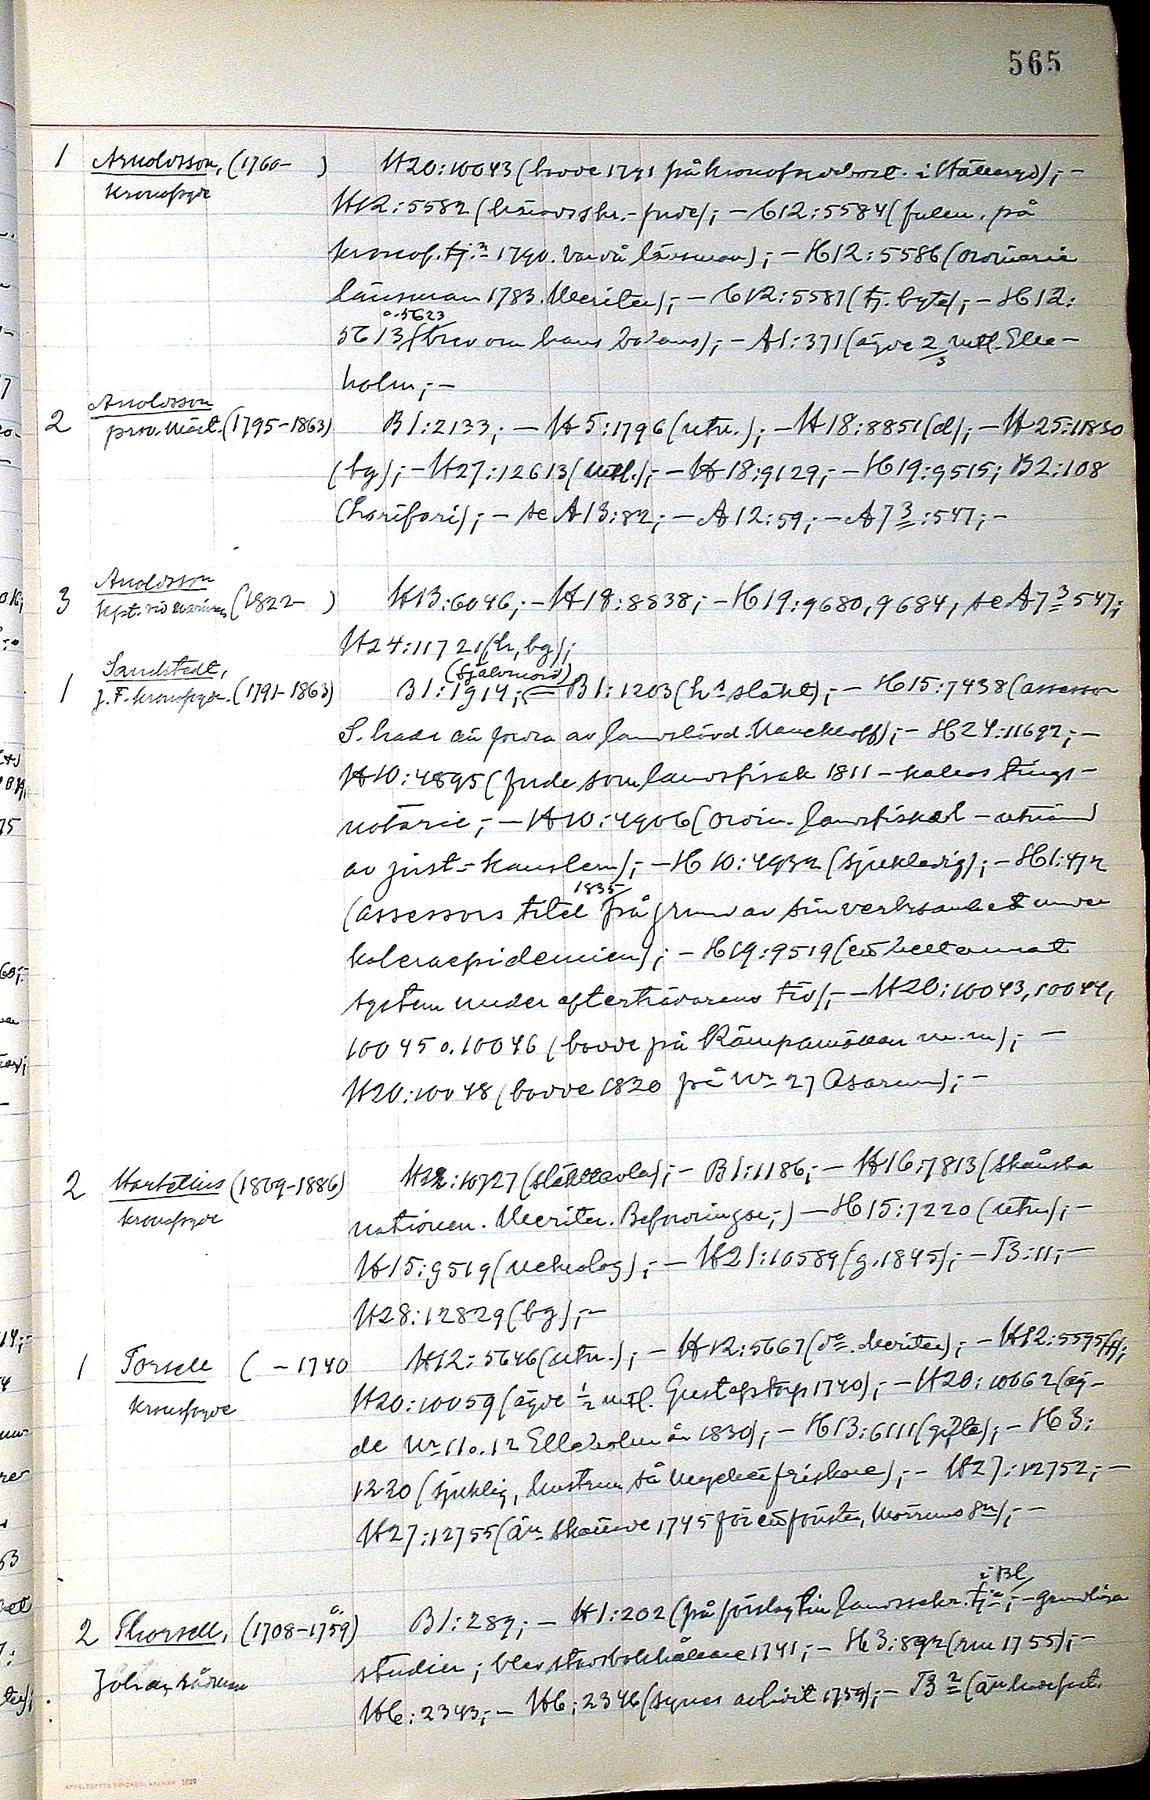 565
1 Arnoldsson, (1760- ) H20:10043 (bodde 1791 på kronofogdebost. i Hällaryd);-
Kronofogde H12:5582 (häradsskr.-fude);- H12:5584 (fullm. på
kronof.tj:n 1790. Vardt länsman);- H12:5586 (ordinarie
länsman 1783. Meriter);- H12:5587 (tj. byte);- H12:
o. 5623
5613 (brev om hans balans);- A1:371 (ägde 2/3 mtl. Elle-
holm;-
2 Arnoldsson
prov.läk. (1795-1863) B1:2133;- H5:1796 (utn.);- H18:8851 (d);- H25:11830
(bg);- H27:12613 (mtl.);- H18:9129;- H19:9515; B2:108
se A13:82;- A12:59;- A7 3:547;-
3 Arnoldsson
(1822- ) H13:6046;- H18:8838;- H19:9680, 9684, se A7 3 547;
H24:11721 (h, bg);
1 Sandstedt,
(självmord)
J. F. kronofogde. (1791-1863) B1:1914;- B1:1203 (hs släkt);- H15:7438 (assessor
S. hade av landshövd. Munck off);- H24:11692;-
H10:4895 (fude som landsfiskal 1811 - kallas tings-
notarie;- H10:4906 (ordin. landsfiskal - utnämnd
av just.-kanslern);- H10:4932 (sjukledig);- H1:472
1835
(assessors titel på grund av sin verksamhet under
koleraepidemien);- H19:9519 (ett helt annat
system under efterträdarens tid);- H20:10043, 10044,
10045 o. 10046 (bodde på m.m);-
H20:10048 (bodde 1820 på Nr 27 Asarum);-
2 (1809-1886) H22:10727 (släkttavla);- B1:1186;- H16:7813 (skånska
kronofogde nationen. Meriter. Befordringar;-) - H15:7220 (utn);-
H15:9519 (nekrolog);- H21:10589 (g. 1845);- B:11;-
H28:12829 (bg);-
1 Torsell ( - 1740 H12:5646 (utn.);- H12:5667 (d:o. Meriter);- H12:5595
Kronofogde H20:10059 (ägde 1/2 mtl. Gustafstorp 1740);- H20:10062 (äg-
de Nr 11 o. 12 Elleholm år 1830);- H13:6111 (gifte);- H3:
1220 (sjuklig, hustrun så mycket friskare);- H27:12752;-
H27:12755 (än skånde 1745 för ett fönster, Mörrums 8n);-
i Bl
2 Thorsell, (1708-1759) B1:289;- H1:202 (på förslag till landssekr.tj:n;- grundliga
Johan studier; blev stadsbokhållare 1741;- H3:892 (rm 1755);-
H6:2343;- H6:2346 (synes avlidit 1759);- B 2 (än